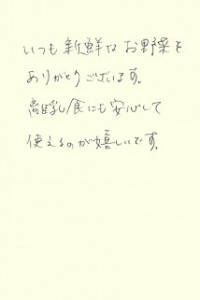 いつも新鮮なお野菜を
ありがとうございます。
離乳食にも安心して
使えるのが嬉しいです。